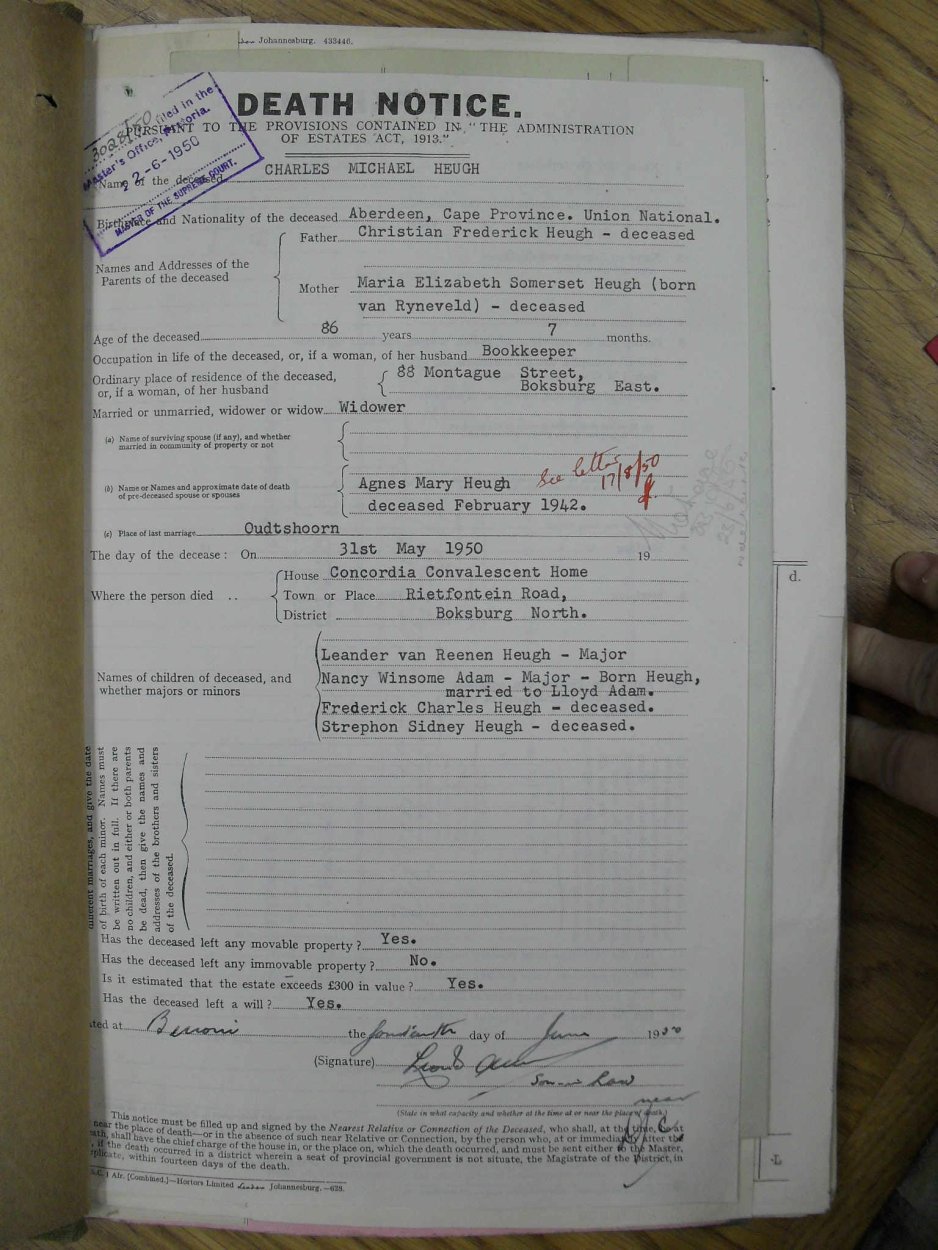 Johannesburg. 433446.
DEATH NOTICE.
PURSUANT TO THE PROVISIONS CONTAINED IN "THE ADMINISTRATION
OF ESTATES ACT, 1913."
filed in the
Master's Office, Pretoria.
22-6-1950
MASTER OF THE SUPREME COURT.
Name of the deceased CHARLES MICHAEL HEUGH
Birthplace and Nationality of the deceased Aberdeen, Cape Province. Union National.
Names and Addresses of the
Parents of the deceased
Father Christian Frederick Heugh - deceased
Mother Maria Elizabeth Somerset Heugh (born
van Ryneveld) - deceased
Age of the deceased 86 years 7 months.
Occupation in life of the deceased, or, if a woman, of her husband Bookkeeper
Ordinary place of residence of the deceased,
or, if a woman, of her husband
88 Montague Street,
Boksburg East.
Married or unmarried, widower or widow Widower
(a) Name of surviving spouse (if any), and whether
married in community of property or not
(b) Name or Names and approximate date of death
of pre-deceased spouse or spouses
Agnes Mary Heugh
deceased February 1942.
See letter
17/8/50
(c) Place of last marriage Oudtshoorn
The day of the decease: On 31st May 1950 19
Where the person died ..
House Concordia Convalescent Home
Town or Place Rietfontein Road,
District Boksburg North.
Names of children of deceased, and
whether majors or minors
Leander van Reenen Heugh - Major
Nancy Winsome Adam - Major - Born Heugh,
married to Lloyd Adam.
Frederick Charles Heugh - deceased.
Strephon Sidney Heugh - deceased.
different marriages, and give the date
of birth of each minor. Names must
be written out in full. If there are
no children, and either or both parents
be dead, then give the names and
addresses of the brothers and sisters
of the deceased.
Has the deceased left any movable property? Yes.
Has the deceased left any immovable property? No.
Is it estimated that the estate exceeds £300 in value? Yes.
Has the deceased left a will? Yes.
ted at Benoni the day of June 1950
(Signature)
Son in Law
near
(State in what capacity and whether at the time at or near the place of death)
This notice must be filled up and signed by the Nearest Relative or Connection of the Deceased, who shall, at the time, be at
near the place of death—or in the absence of such near Relative or Connection, by the person who, at or immediately after the
ath, shall have the chief charge of the house in, or the place on, which the death occurred, and must be sent either to the Master,
, if the death occurred in a district wherein a seat of provincial government is not situate, the Magistrate of the District, in
plicate, within fourteen days of the death.
Afr. [Combined.]—Hortors Limited Johannesburg.—628.
d.